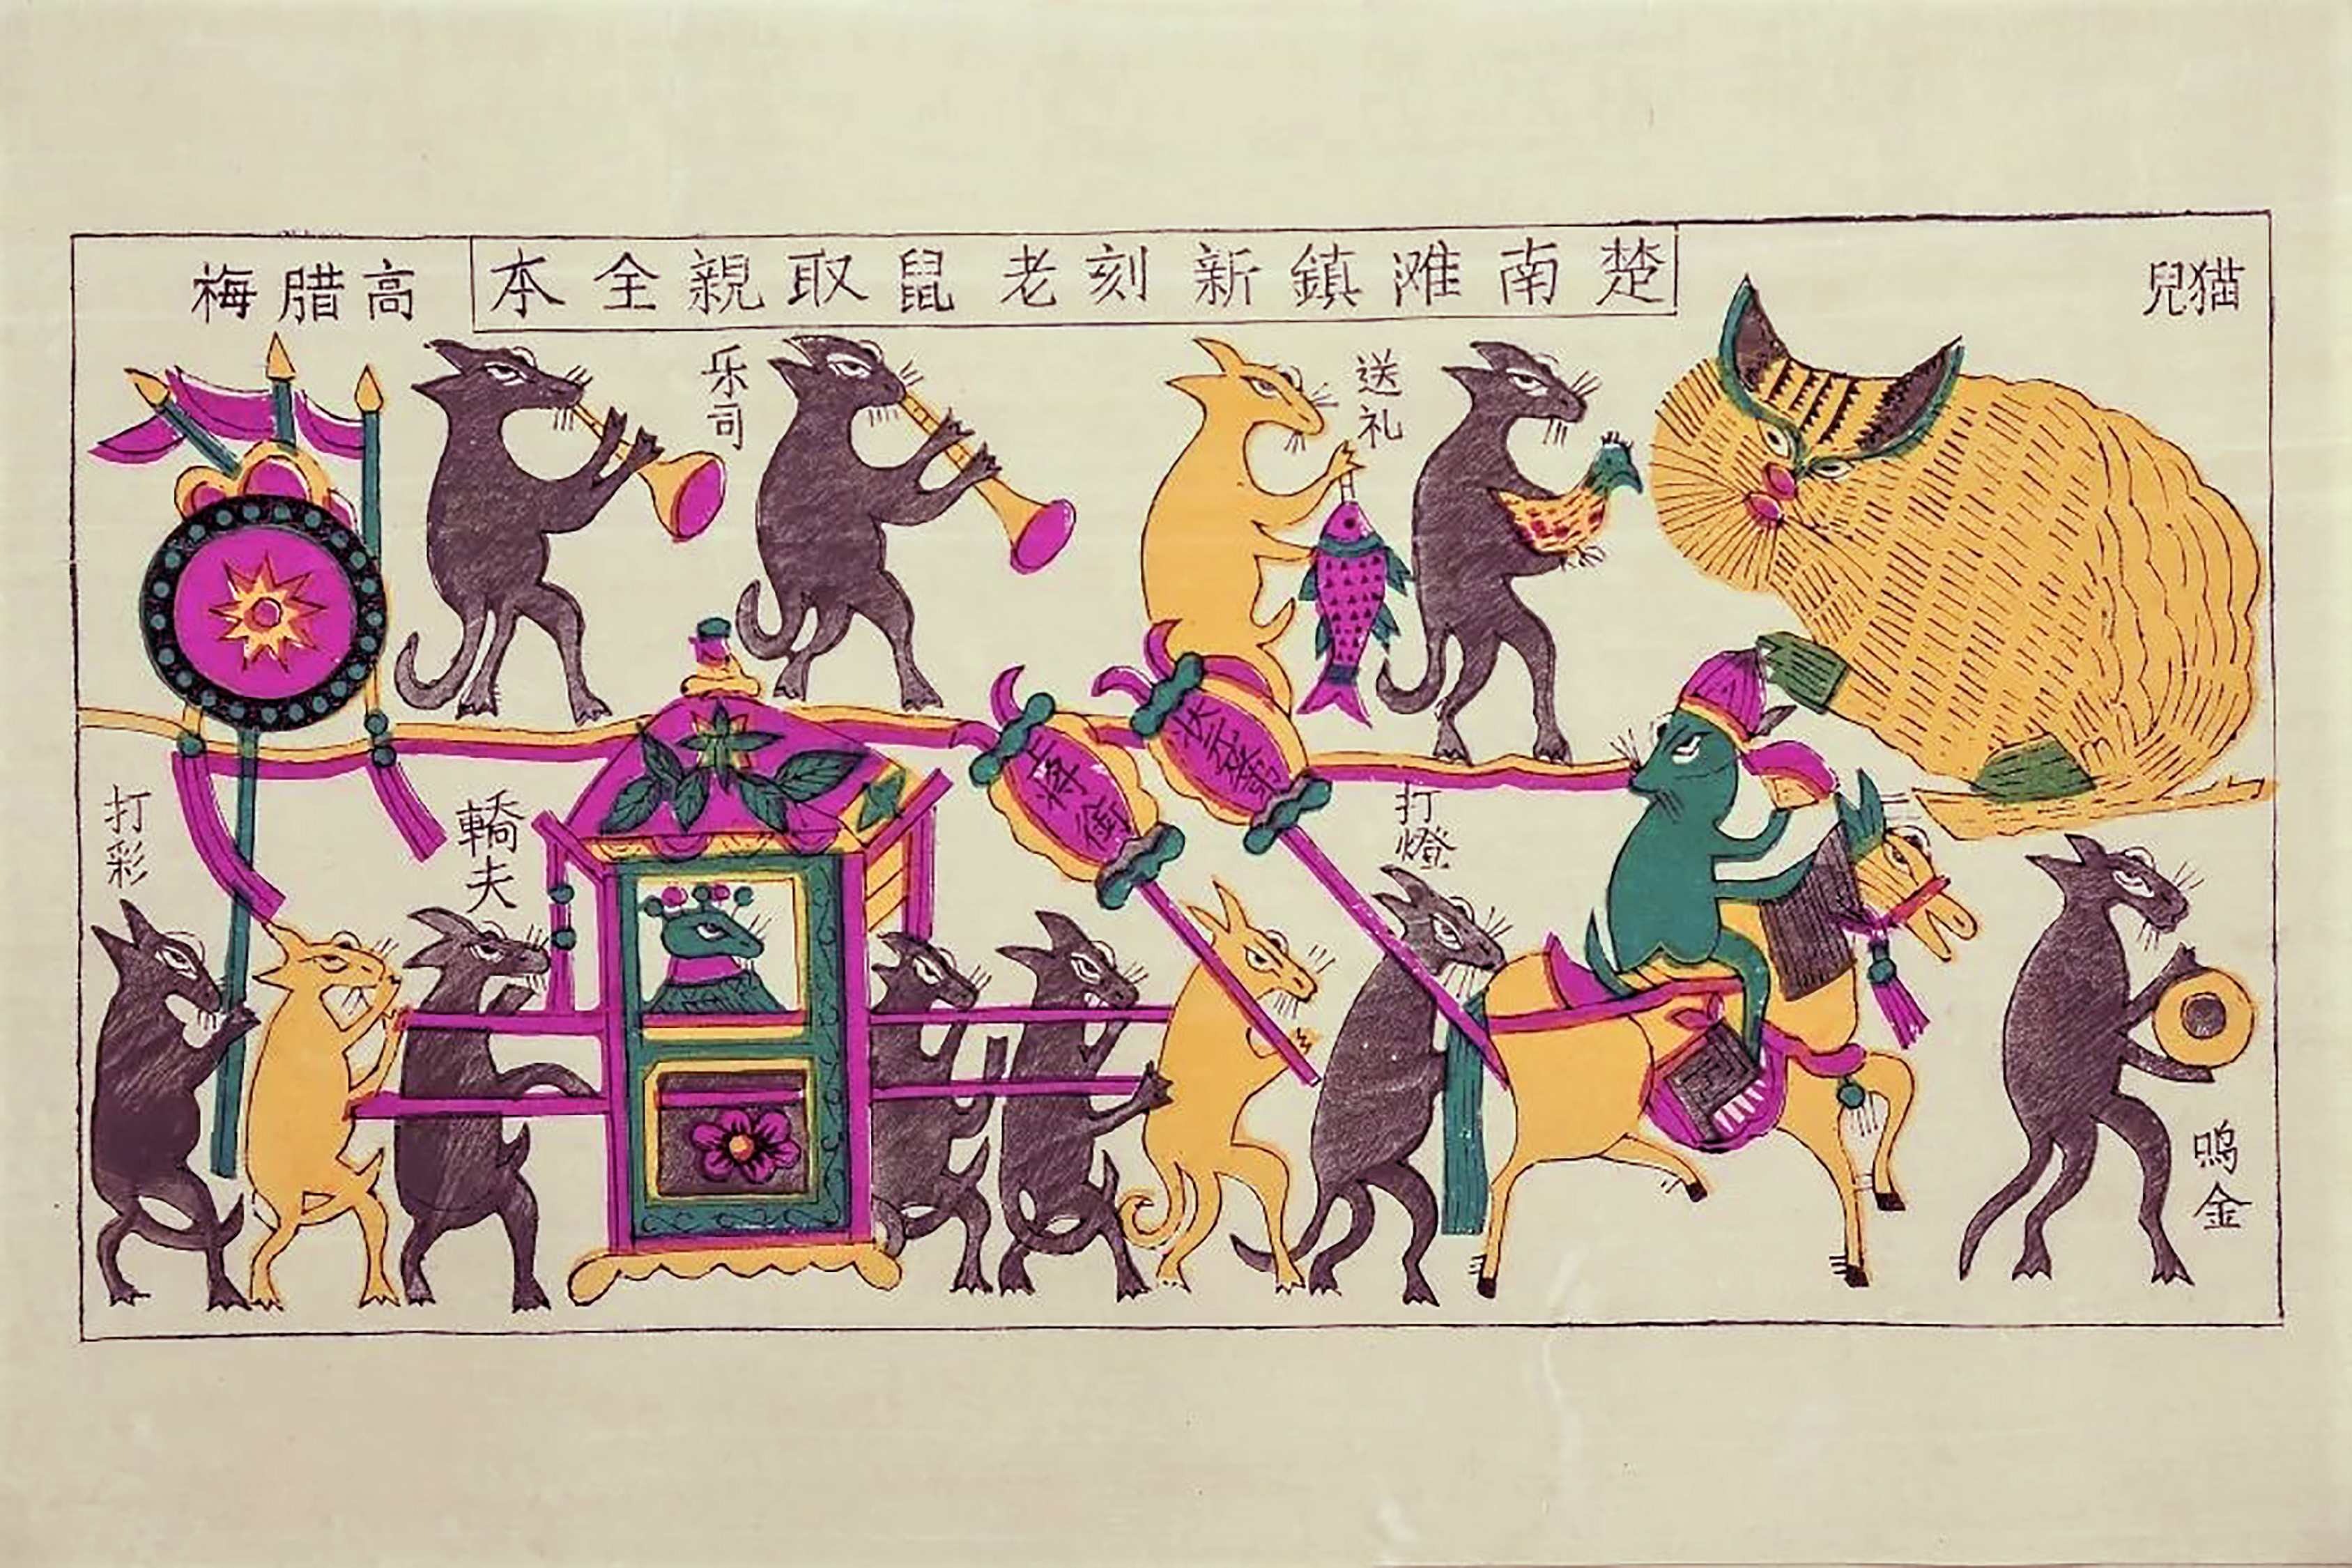 猫兒
楚南滩鎮新刻老鼠取親全本
高腊梅
送礼
乐司
鳴金
打燈
轎夫
打彩